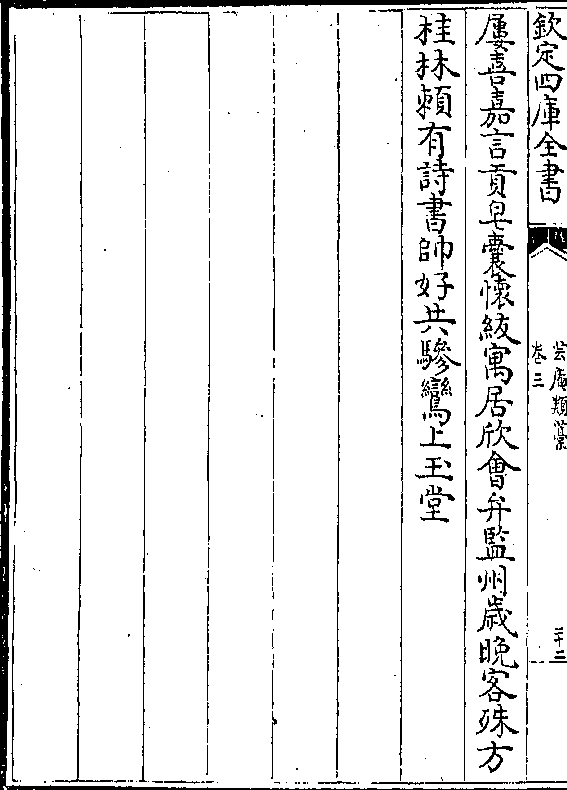 欽定四庫全書
芸庵類藁
卷三
二十二
屢喜嘉言貢皂囊懷紱寓居欣會弁監州歲晚客殊方
桂林頼有詩書帥好共驂鸞上玉堂